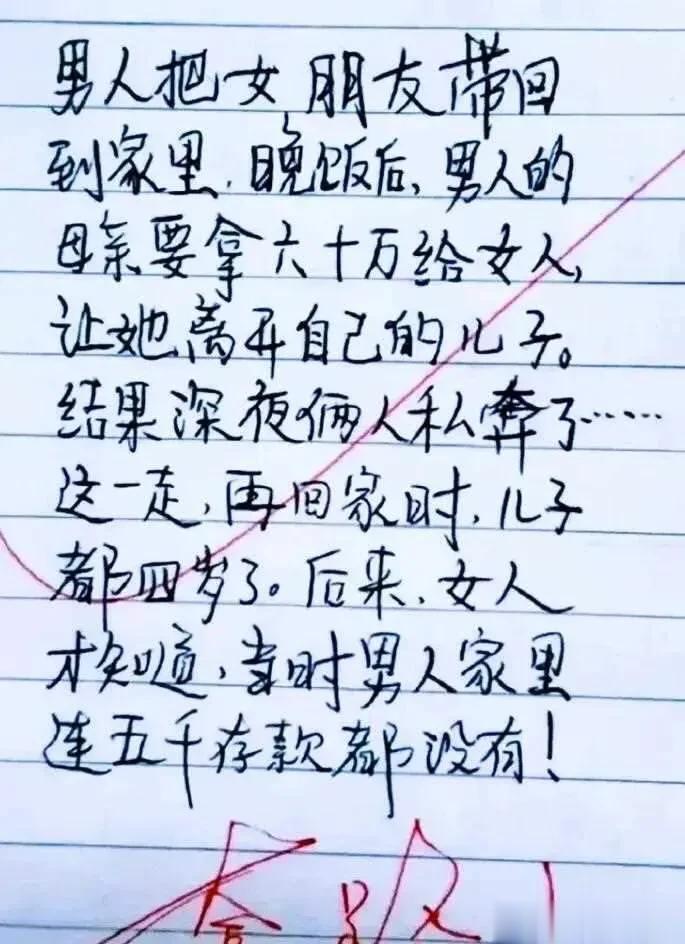 男人把女朋友带回
到家里，晚饭后，男人的
母亲要拿六十万给女人，
让她离开自己的儿子。
结果深夜俩人私奔了……
这一走，再回家时，儿子
都四岁了。后来，女人
才知道，当时男人家里
连五千存款都没有！